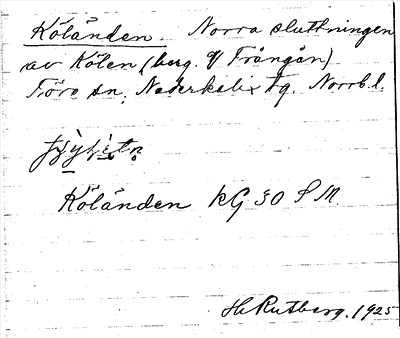 Köländen. Norra sluttningen
av Kölen (berg. vf Trångån)
Töre sn; Nederkalix tg. Norrb. l.
Köländen kG 30 S M.
H Rutberg. 1925